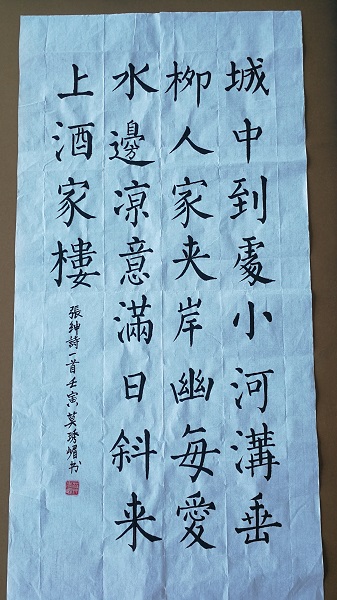 城中到處小河溝垂
柳人家夹岸幽每愛
水邊凉意滿日斜来
上酒家樓
張紳詩一首壬寅莫琇媚书